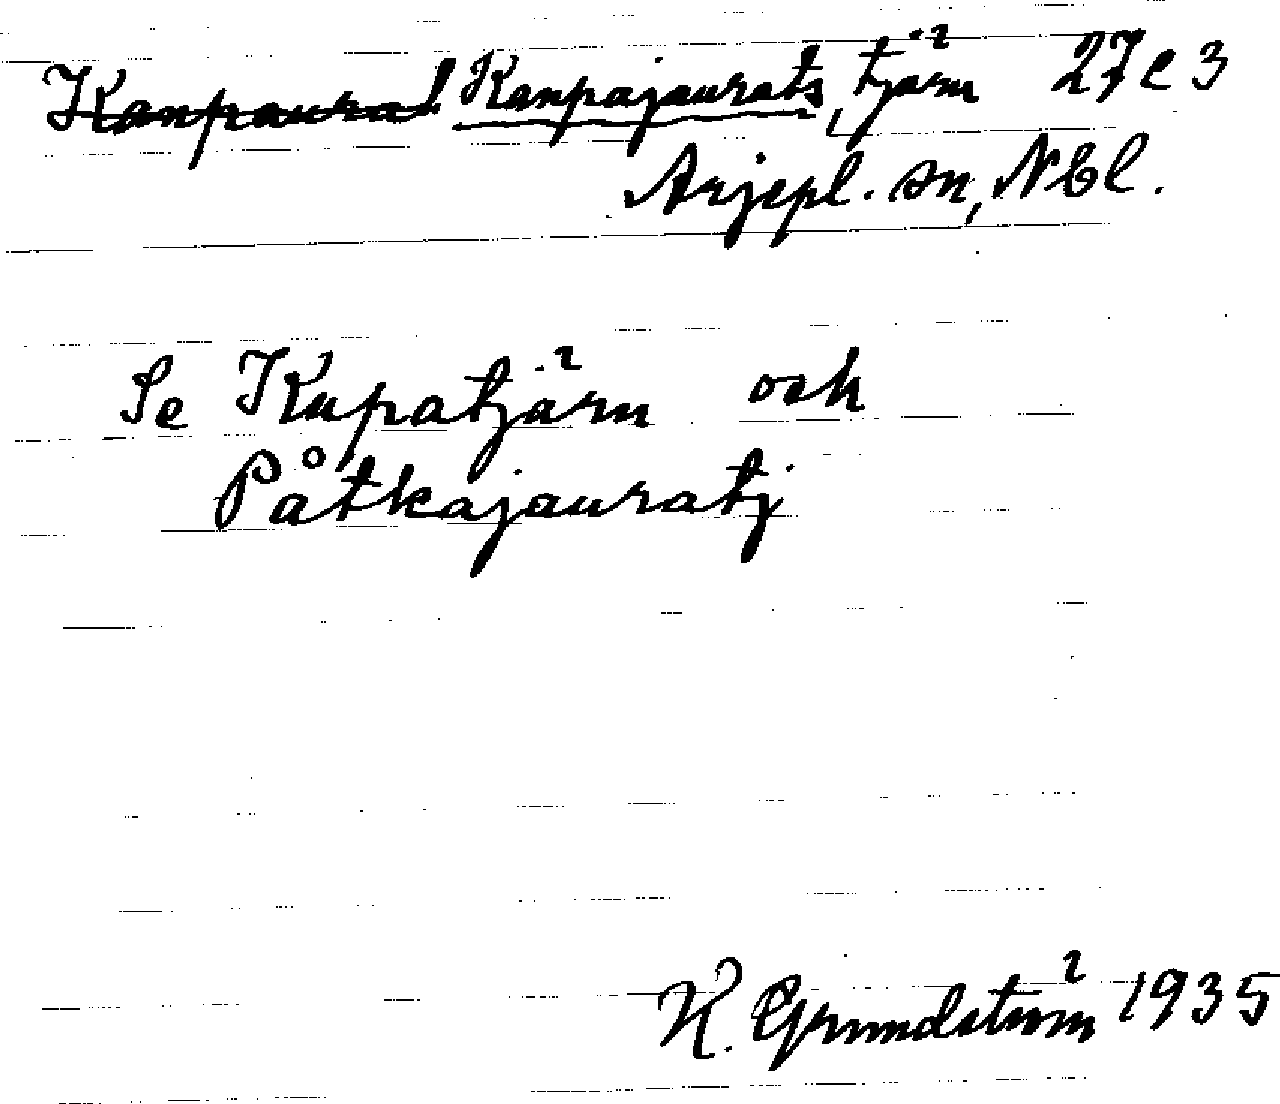 Kanpajaurats, tjärn 27 c 3
Arjepl. sn, Nbl.
Se Kupatjärn och
Påtkajauratj
K. Grundström 1935